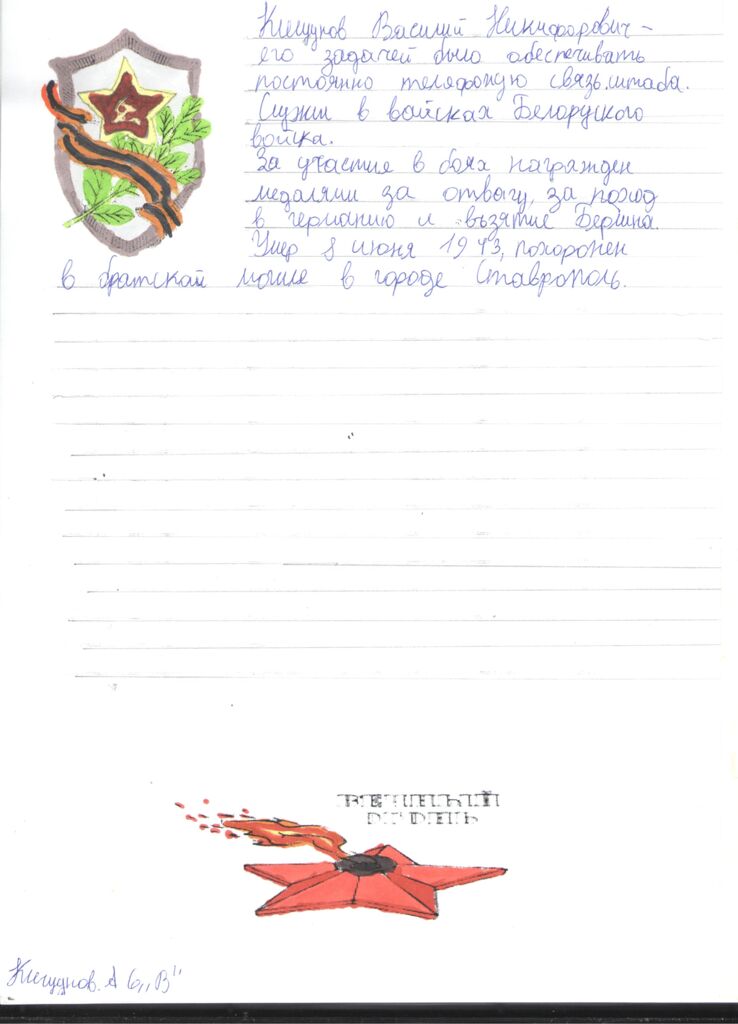 Василий Никифорович –
его задачей было обеспечивать
постоянно телефоную связь штаба.
Служил в войсках Белоруского
войска.
За участие в боях награжден
медалями за отвагу, за поход
в германию и възятие Берлина.
Умер 8 июня 1943, похоронен
в братской могиле в городе Ставрополь.
ВЕЧНЫЙ
ОГОНЬ
А 6 „В"